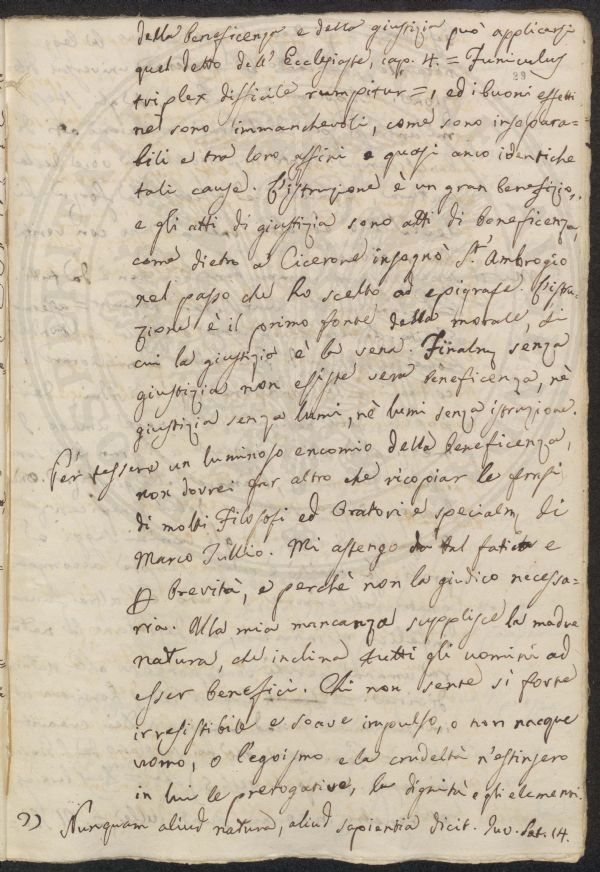 della beneficenza e della giustizia può applicarsi
quel detto dell' Ecclesiaste, capo. 4. = Funiculus
29
triplex difficile rumpitur =, ed i buoni effetti
ne sono immanchevoli, come sono insepara=
bili e tra loro affini e quasi anco identiche
tali cause. L'istruzione è un gran benefizio,
e gli atti di giustizia sono atti di beneficenza,
come dietro a Cicerone insegnò S. Ambrogio
nel passo che ho scelto ad epigrafe. L'istru-
zione è il primo fonte della morale, di
cui la giustizia è la vena. Finalm. senza
giustizia non esiste vera beneficenza, nè
giustizia senza lumi, nè lumi senza istruzione.
Per tessere un luminoso encomio della beneficenza,
non dovrei far altro che ricopiar le frasi
di molti Filosofi ed Oratori e specialm. di
Marco Tullio. Mi astengo da tal fatica e
p brevità, e perchè non la giudico necessa-
ria. Alla mia mancanza supplisce la madre
natura, che inclina tutti gli uomini ad
esser benefici. Chi non sente sì forte
irresistibile e soave impulso, o non nacque
uomo, o l'egoismo e la crudeltà n'estinsero
in lui le prerogative, la dignità e gli elementi.
Nunquam aliud natura, aliud sapientia dicit. Juv. Sat. 14.